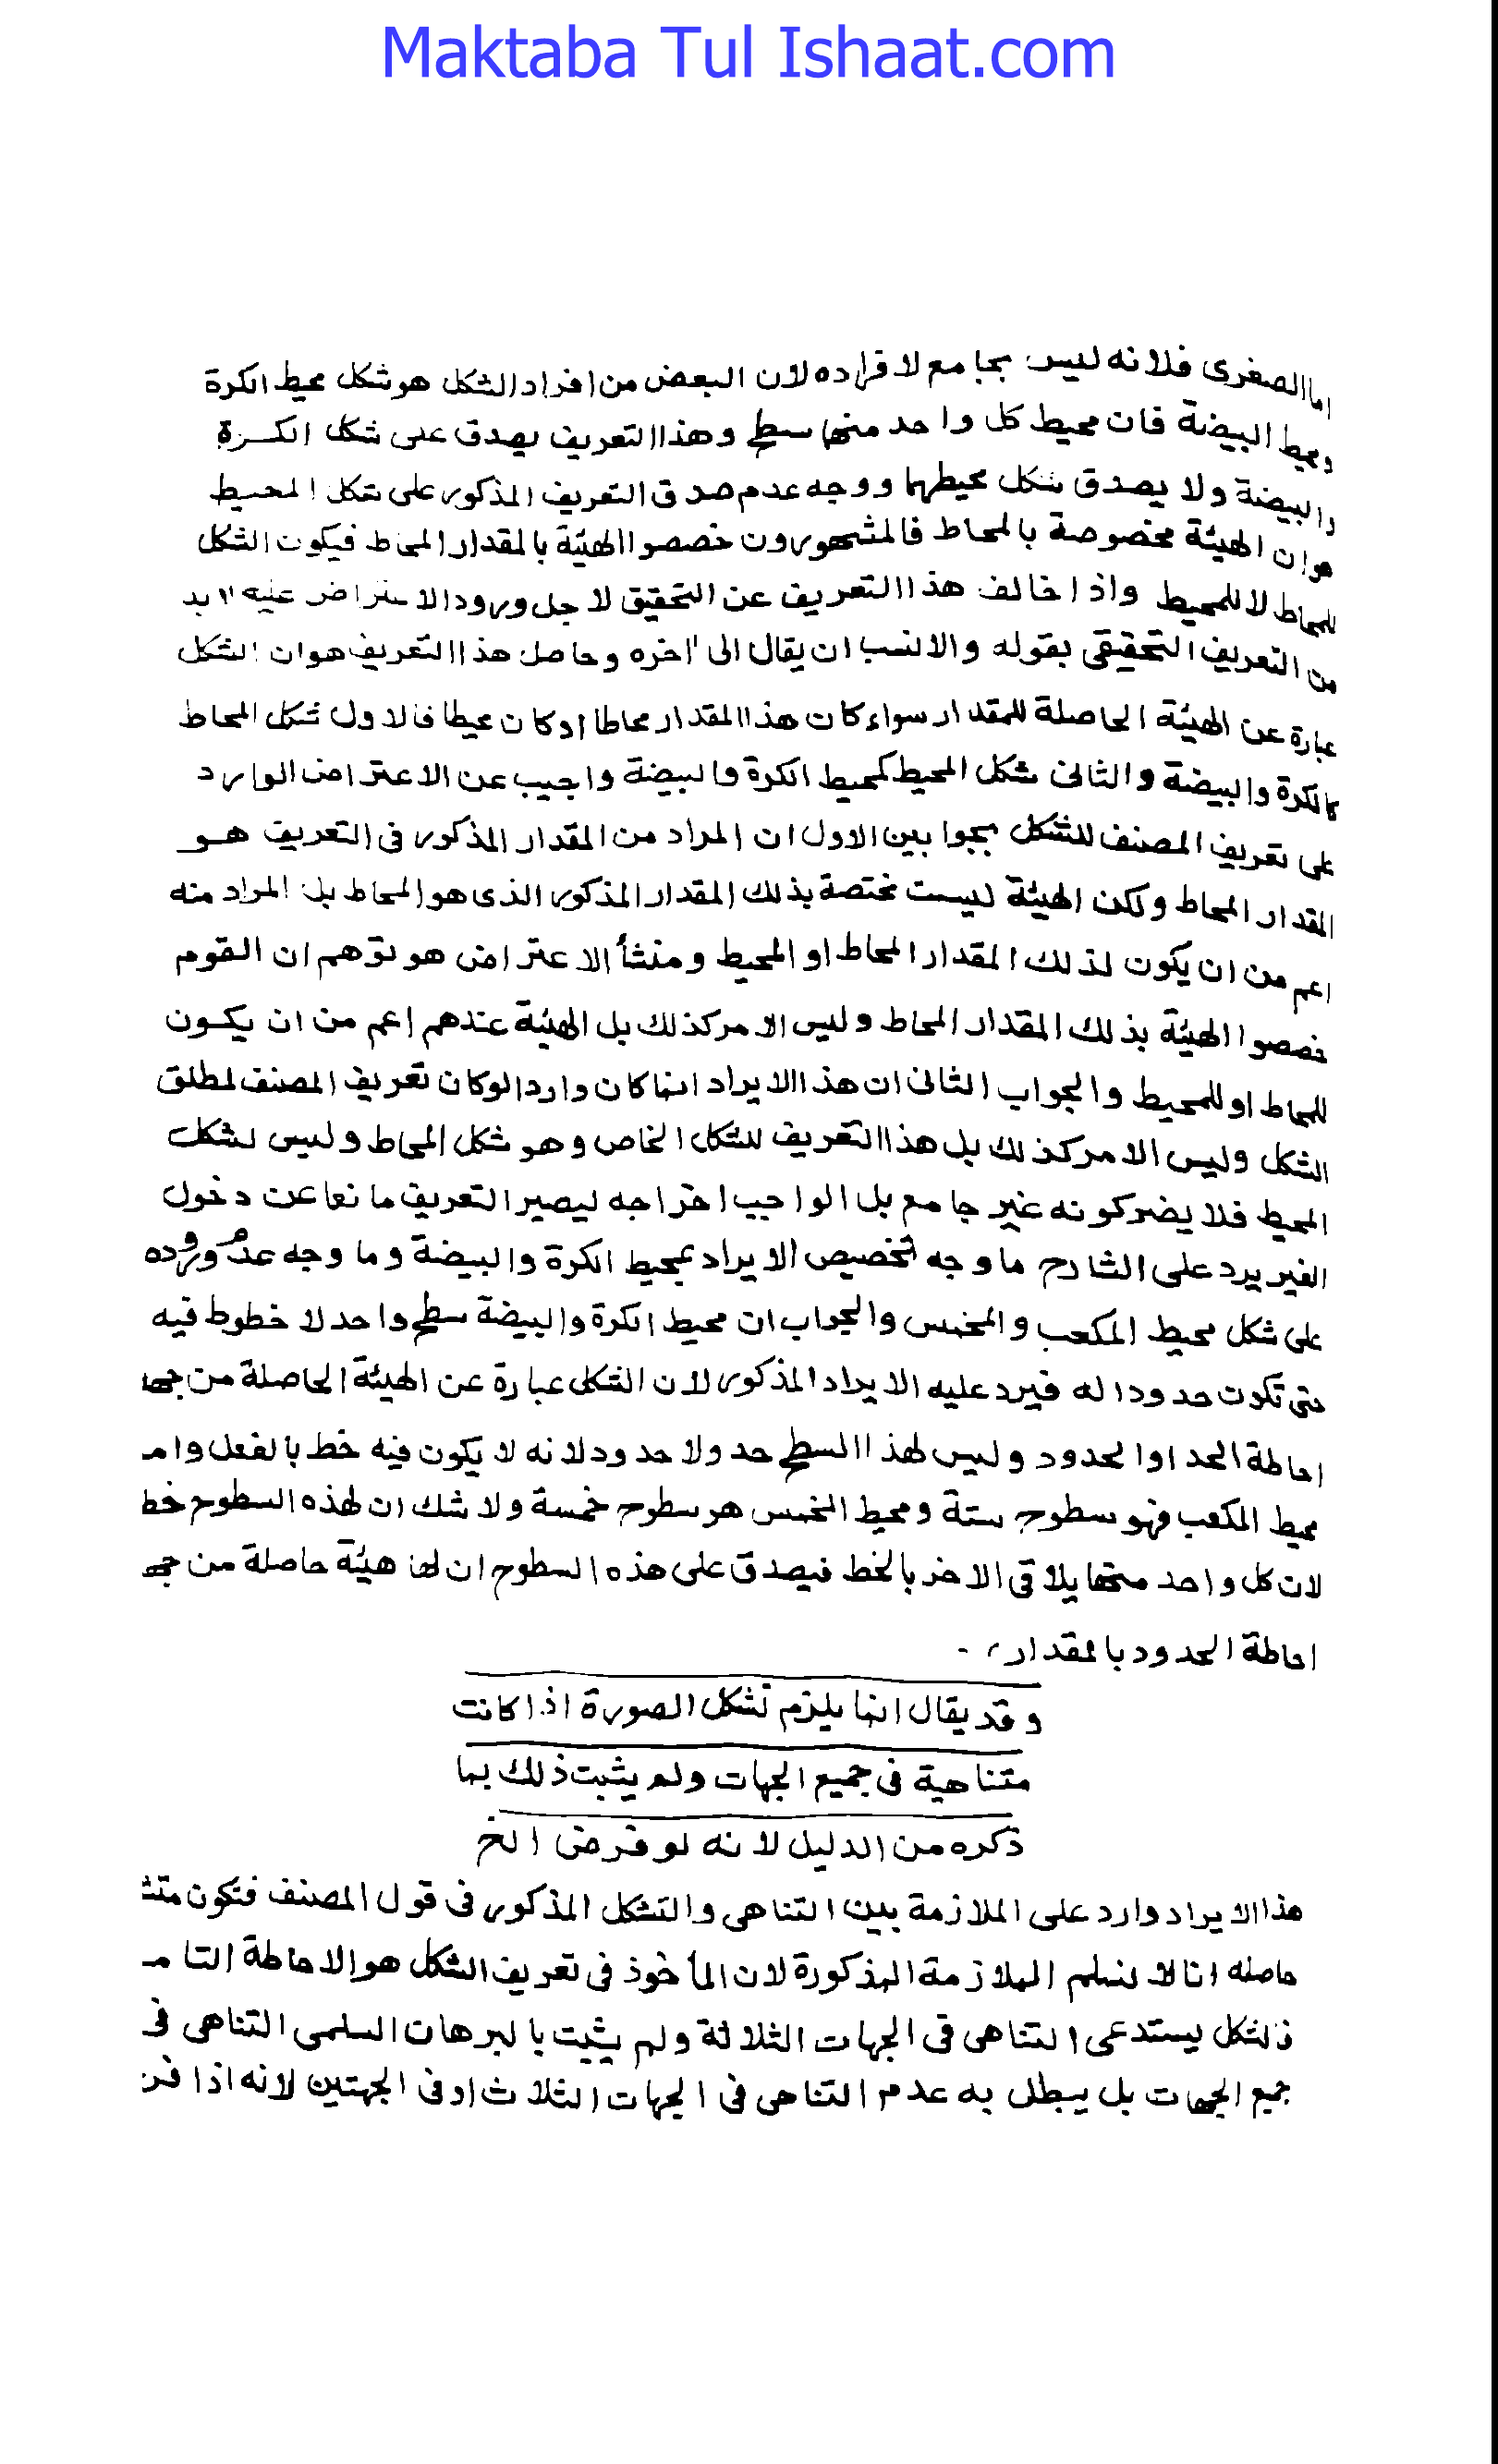 Maktaba Tul Ishaat.com
اما الصغرى فلانه ليس بجامع لافراده لان البعض من افراد الشكل هو شكل محيط الكرة
ومحيط البيضة فان محيط كل واحد منهما سطح وهذا التعريف يصدق على شكل الكرة
والبيضة ولا يصدق شكل محيطهما ووجه عدم صدق التعريف المذكور على شكل المحيط
هو ان الهيئة مخصوصة بالمحاط فالمشهورون خصصوا الهيئة بالمقدار المحاط فيكون الشكل
للمحاط لا للمحيط واذا خالف هذا التعريف عن التحقيق لاجل ورود الاعتراض عليه لابد
من التعريف التحقيقي بقوله والانسب ان يقال الى اخره وحاصل هذا التعريف هو ان الشكل
عبارة عن الهيئة الحاصلة للمقدار سواء كان هذا المقدار محاطا او كان محيطا فالاول شكل المحاط
كالكرة والبيضة والثانى شكل المحيط كمحيط الكرة والبيضة واجيب عن الاعتراض الوارد
على تعريف المصنف للشكل بجوابين الاول ان المراد من المقدار المذكور فى التعريف هو
المقدار المحاط ولكن الهيئة ليست مختصة بذلك المقدار المذكور الذى هو المحاط بل المراد منه
اعم من ان يكون لذلك المقدار المحاط او المحيط ومنشأ الاعتراض هو توهم ان القوم
خصصوا الهيئة بذلك المقدار المحاط وليس الامر كذلك بل الهيئة عندهم اعم من ان يكون
للمحاط او للمحيط والجواب الثانى ان هذا الايراد انما كان واردا لو كان تعريف المصنف لمطلق
الشكل وليس الامر كذلك بل هذا التعريف للشكل الخاص وهو شكل المحاط وليس لشكل
المحيط فلا يضر كونه غير جامع بل الواجب اخراجه ليصير التعريف مانعا عن دخول
الغير يرد على الشارح ما وجه تخصيص الايراد بمحيط الكرة والبيضة وما وجه عدم وروده
على شكل محيط المكعب والمخمس والجواب ان محيط الكرة والبيضة سطح واحد لا خطوط فيه
حتى تكون حدودا له فيرد عليه الايراد المذكور لان الشكل عبارة عن الهيئة الحاصلة من جهة
احاطة الحد او الحدود وليس لهذا السطح حد ولا حدود لانه لا يكون فيه خط بالفعل واما
محيط المكعب فهو سطوح ستة ومحيط المخمس هو سطوح خمسة ولا شك ان لهذه السطوح خط
لان كل واحد منها يلاقى الاخر بالخط فيصدق على هذه السطوح ان لها هيئة حاصلة من جهة
احاطة الحدود بالمقدار -
وقد يقال انما يلزم تشكل الصورة اذا كانت
متناهية فى جميع الجهات ولم يثبت ذلك بما
ذكره من الدليل لانه لو فرض الخ
هذا الايراد وارد على الملازمة بين التناهى والتشكل المذكور فى قول المصنف فتكون
حاصله انا لا نسلم الملازمة المذكورة لان المأخوذ فى تعريف الشكل هو الاحاطة التامة
فالشكل يستدعى التناهى فى الجهات الثلاثة ولم يثبت بالبرهان السلمى التناهى فى
جميع الجهات بل يبطل به عدم التناهى فى الجهات الثلاث او فى الجهتين لانه اذا